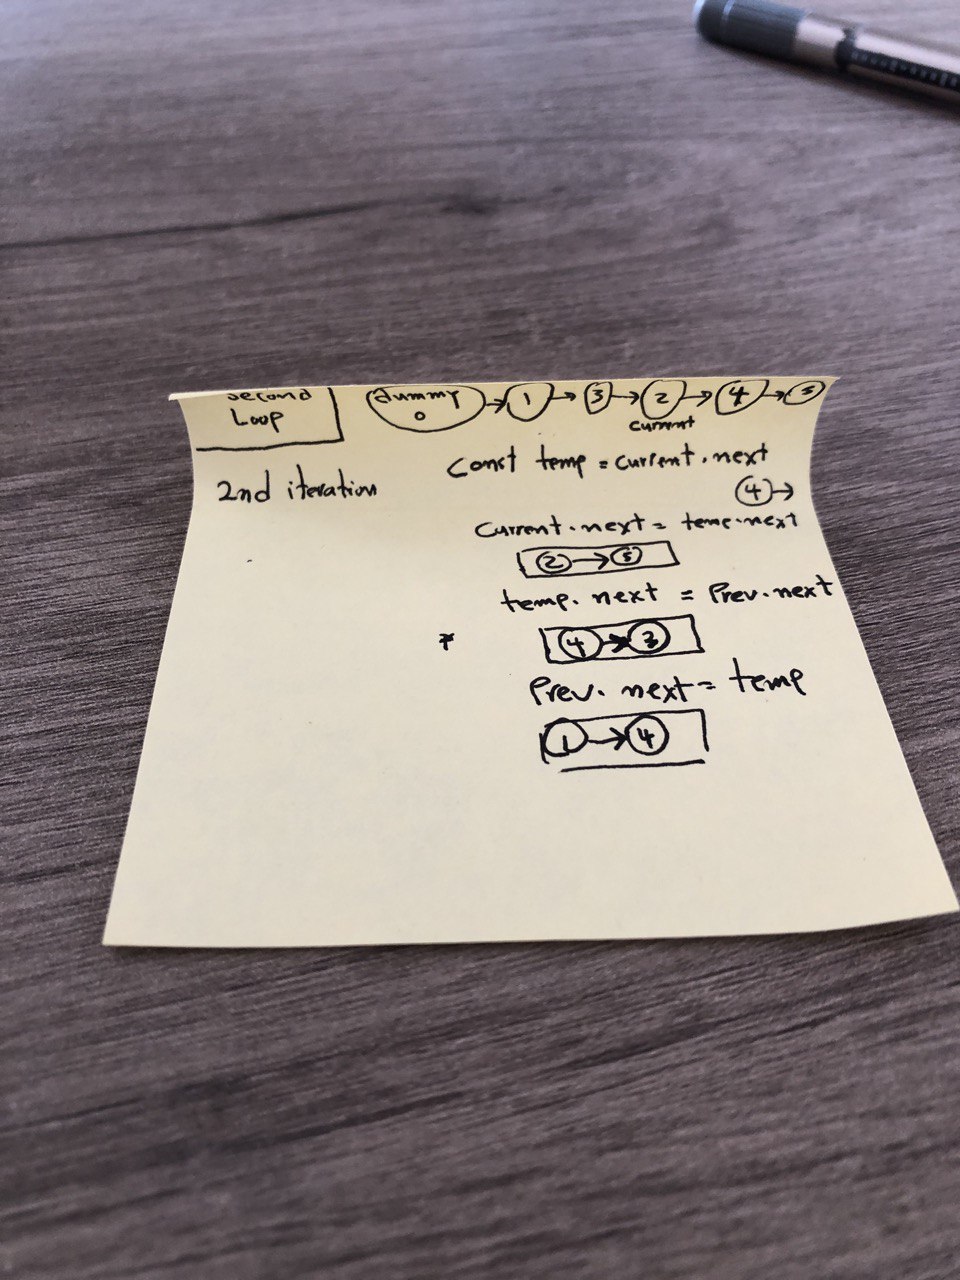 second
Loop
dummy
0 → 1 → 3 → 2 → 4 → 5
current
2nd iteration
const temp = current.next
4 →
current.next = temp.next
2 → 5
temp.next = Prev.next
4 → 3
Prev.next = temp
1 → 4